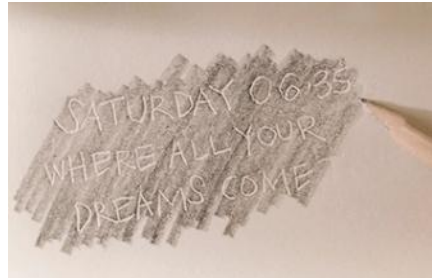 SATURDAY 06:35
WHERE ALL YOUR
DREAMS COME